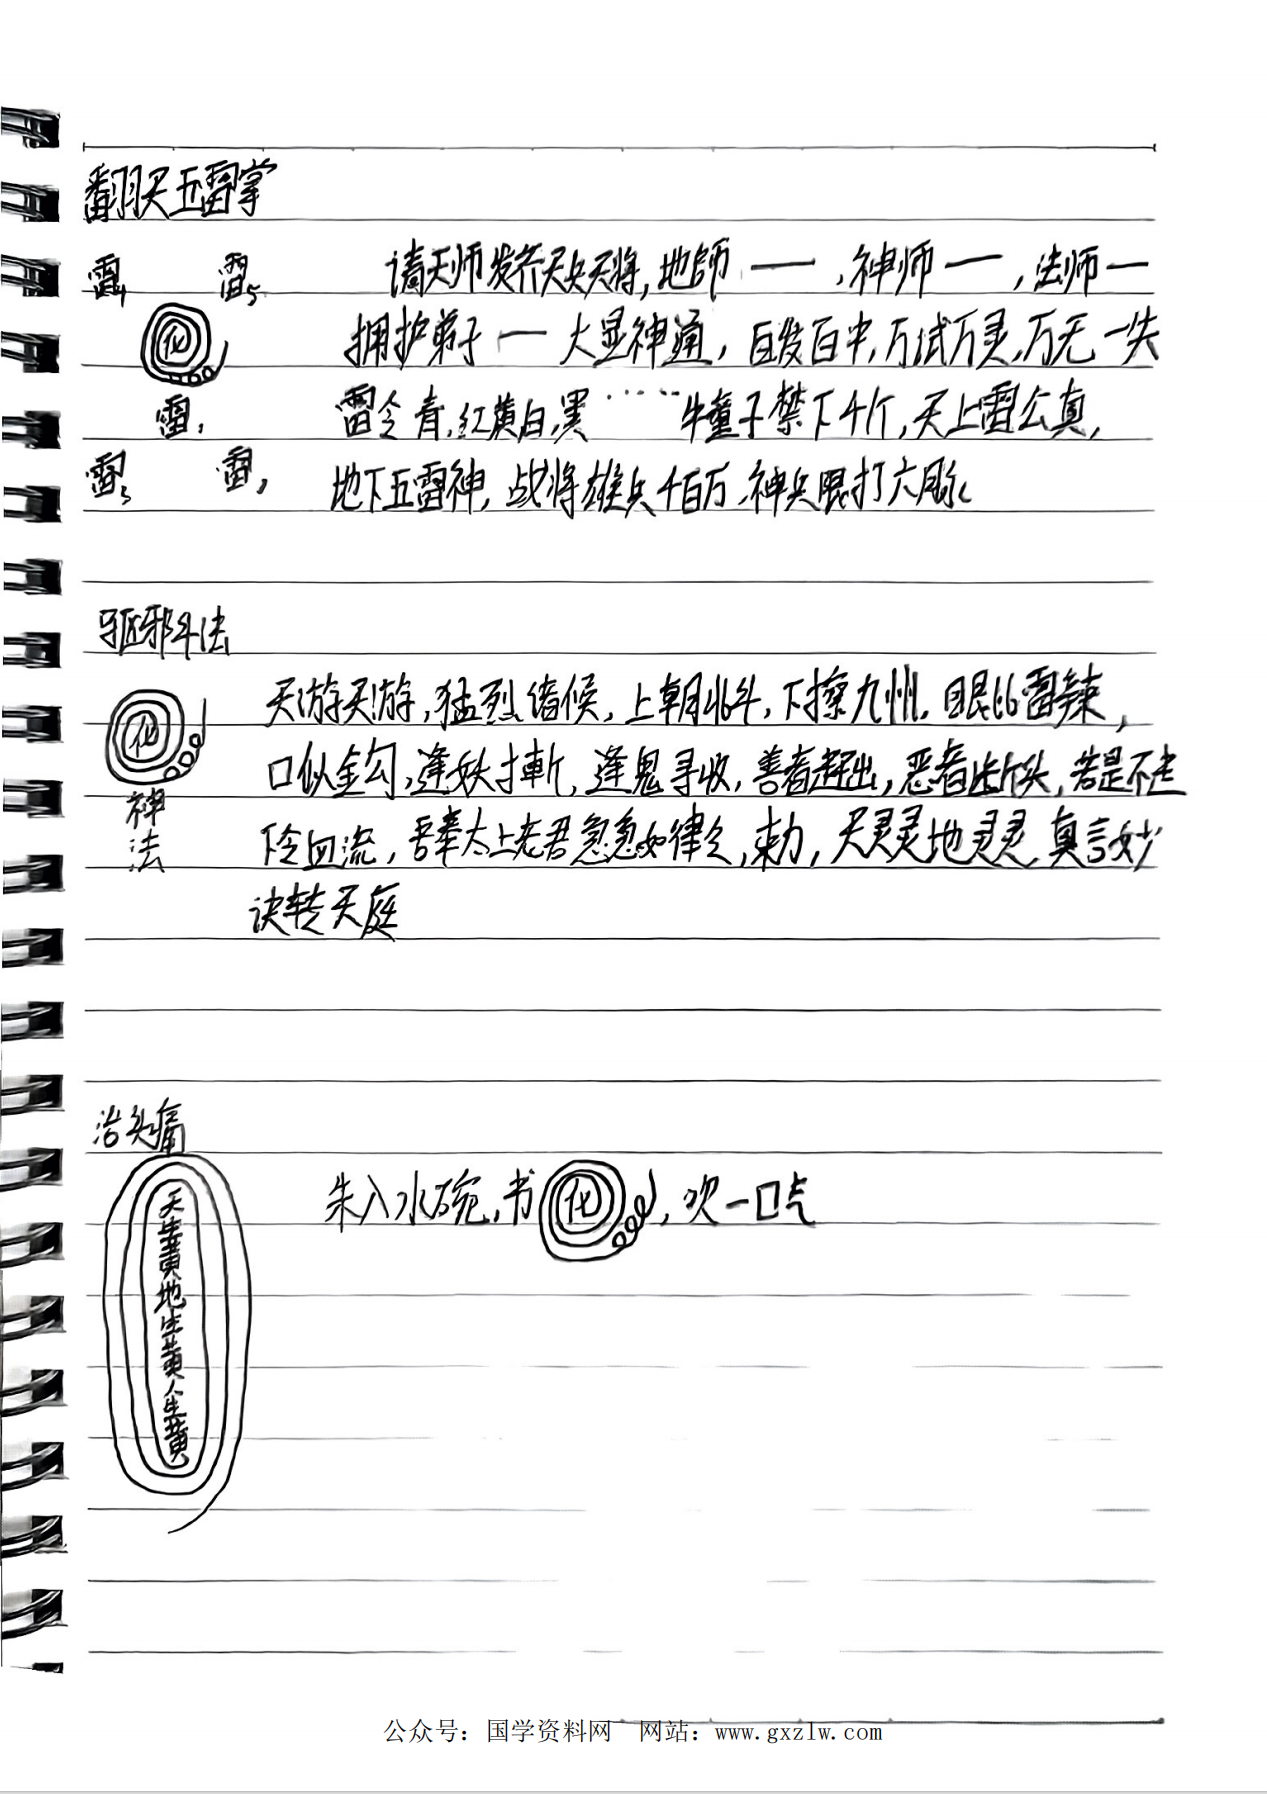 翻天五雷掌
雷4 雷5 请天师发齐天兵天将,地師一,神师一,法师一
化 拥护弟子一大显神通,百发百中,万试万灵,万无一失
雷1 雷令青,红黄白,黑……牛童子禁下千斤,天上雷公真,
雷3 雷2 地下五雷神,战将雄兵千百万,神兵眼打六脉
驱邪斗法
天游天游,猛烈诸候,上朝北斗,下擦九州,眼比雷辣,
化 口似金勾,逢妖才斬,逢鬼寻收,善者赶出,恶者断头,若是不走
神法 下令血流,吾奉太上老君急急如律令,敕力,天灵灵地灵灵真言妙
诀转天庭
治头痛
天生黄地生黄人生黄
朱入水碗,书化,吹一口气
公众号:国学资料网 网站:www.gxzlw.com